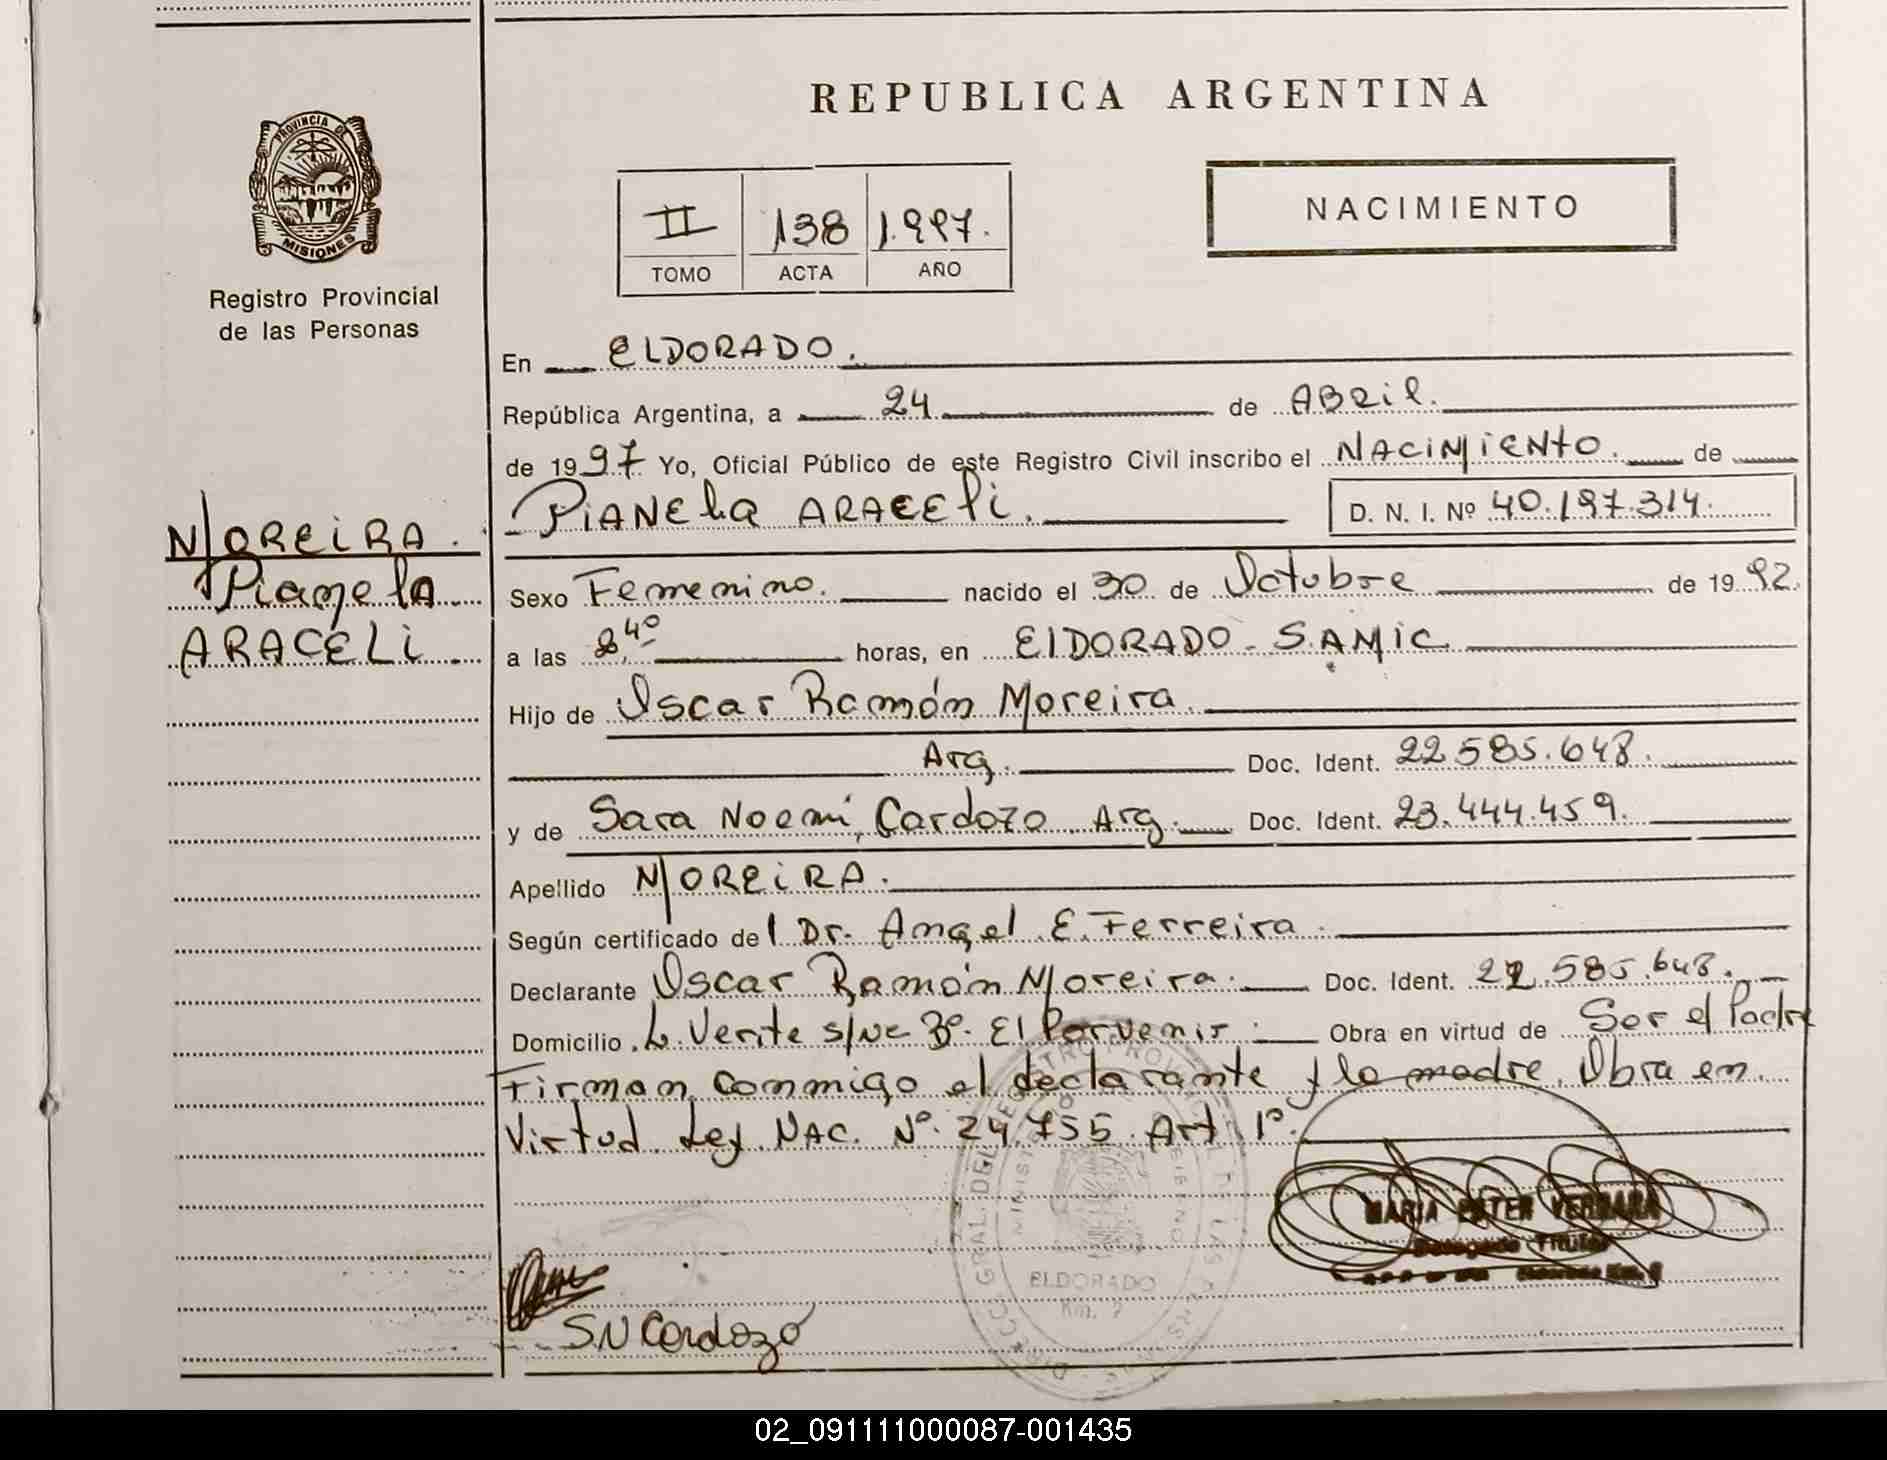 REPUBLICA ARGENTINA
PROVINCIA DE
MISIONES
Registro Provincial
de las Personas
II 138 1.997.
TOMO ACTA AÑO
NACIMIENTO
En ELDORADO.
República Argentina, a 24 de ABRil.
de 1997. Yo, Oficial Público de este Registro Civil inscribo el NACIMIENTO. de
PIANELA ARACELI. D. N. I. Nº 40.197.314.
MOREIRA.
Pianela
ARACELI
Sexo Femenino. nacido el 30 de Octubre de 1992.
a las 8,40 horas, en ElDORADO - S.AMIC
Hijo de Oscar Ramón Moreira.
Arg. Doc. Ident. 22.585.648.
y de Sara Noemi, Cardozo Arg. Doc. Ident. 23.444.459.
Apellido MOREIRA.
Según certificado del Dr. Angel E. Ferreira.
Declarante Oscar Ramón Moreira. Doc. Ident. 22.585.648.
Domicilio Verite Bº. El Porvenir. Obra en virtud de Ser el Padre
Firman conmigo el declarante y la madre. Obra en
Virtud Ley NAC. Nº. 24.755 Art 1º.
MARIA ESTER VERGARA
Delegada Titular
ELDORADO
Km.
S.N Cardozo
02_091111000087-001435